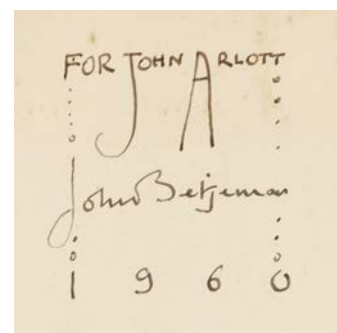 FOR JOHN ARLOTT
John Betjeman
1960